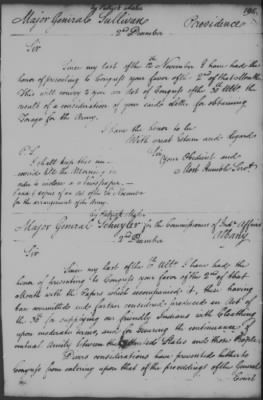 by Patrick Maher
Major General Sullivan Providence
2d December
Sir
Since my last of the 7th November I have had the
honor of presenting to Congress your favor of the 2nd of that Month
This will convey to you an Act of Congress of the 30 Ulto the
result of a consideration of your said letter for obtaining
Forage for the Army.
I have the honor to be
With great Esteem and Regard
Sir Your Obedient and
Most Humble Servt
P.S.
I shall keep this un-
sealed till the Morning in
order to inclose a Newspaper
by Patrick Maher
Major General Schuyler or the Commissioners of Ind. Affairs
2nd December Albany
Sir
Since my last of the Ulto I have had the
honor of presenting to Congress your favor of the 2nd of that
Month with the Papers which accompanied it, these having
been committed and further considered produced an Act of
the 30 for supplying our friendly Indians with Cloathing
upon moderate terms, and for securing the continuance of
mutual Amity between the United States and those People.
Divers considerations have prevented hitherto
Congress from entering upon that of the proceedings of the General
Court